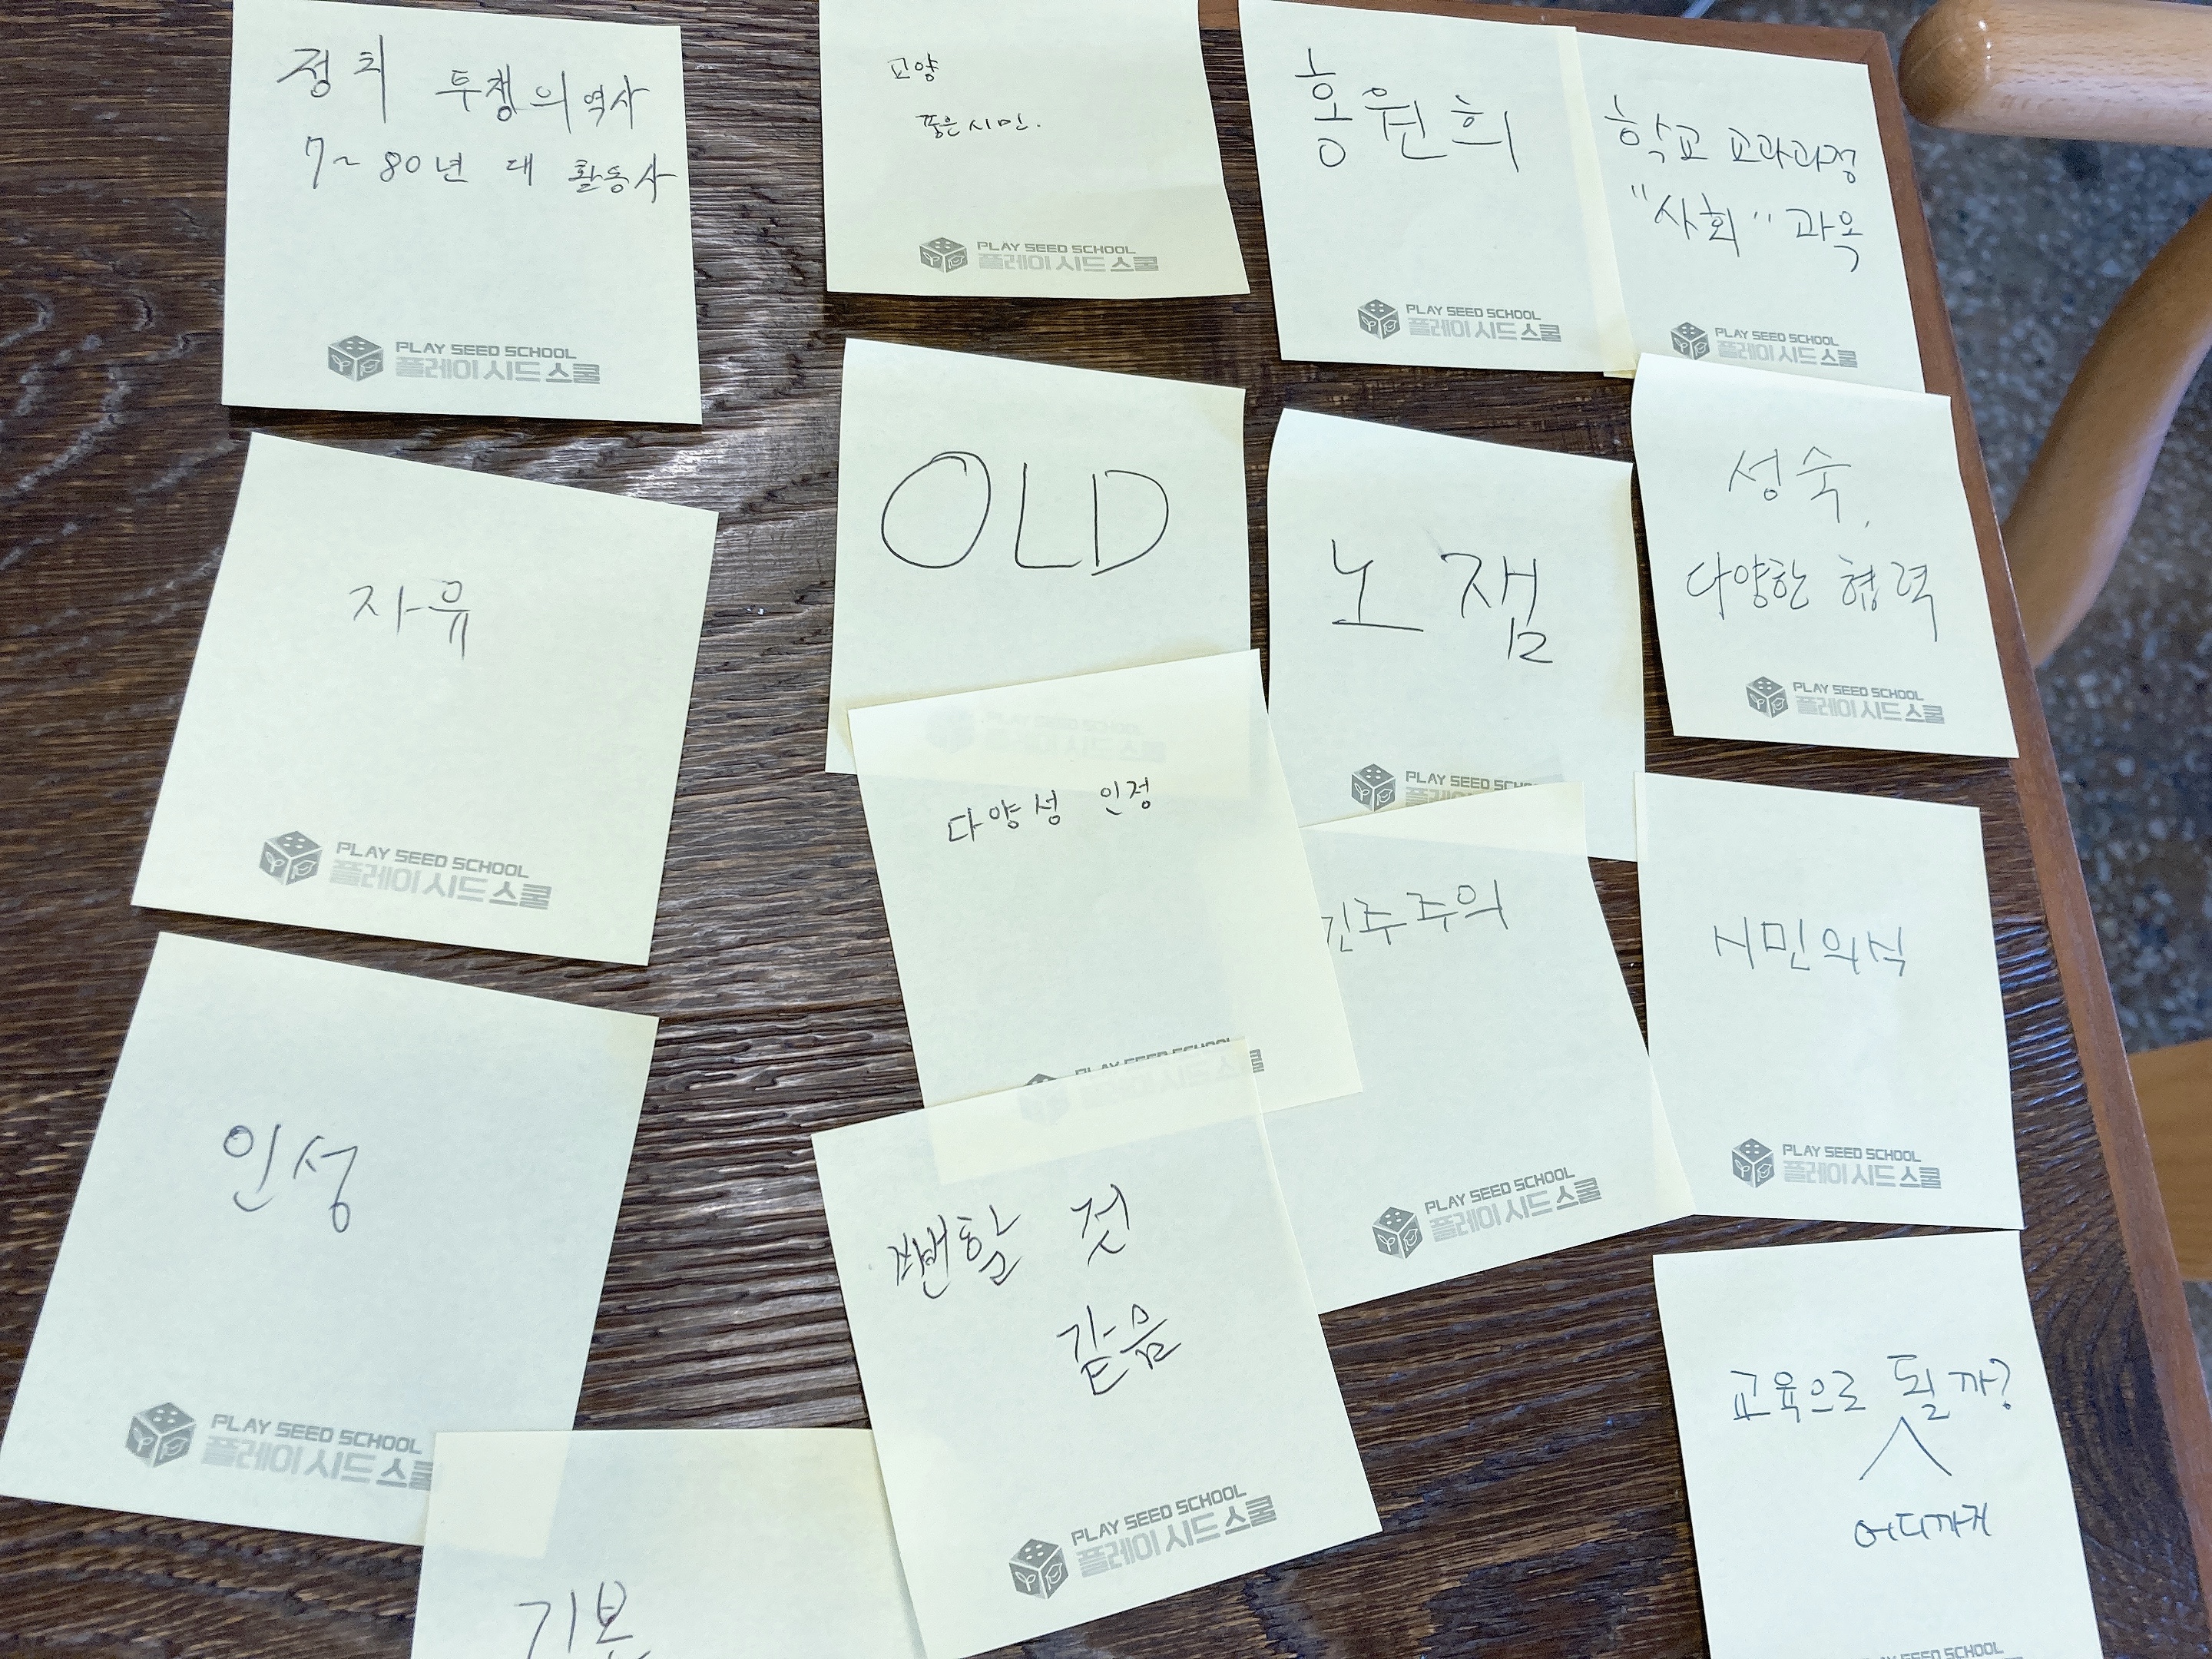 정치 투쟁의 역사
7~80년대 활동사
PLAY SEED SCHOOL
플레이시드스쿨
교양
좋은시민.
PLAY SEED SCHOOL
플레이시드스쿨
홍원희
PLAY SEED SCHOOL
플레이시드스쿨
학교 교과과정
"사회" 과목
PLAY SEED SCHOOL
플레이시드스쿨
자유
PLAY SEED SCHOOL
플레이시드스쿨
OLD
노잼
PLAY SEED SCHO
성숙,
다양한 협력
PLAY SEED SCHOOL
플레이시드스쿨
다양성 인정
PLAY SEED SCHOOL
민주주의
PLAY SEED SCHOOL
플레이시드스쿨
시민의식
PLAY SEED SCHOOL
플레이시드스쿨
인성
PLAY SEED SCHOOL
플레이시드스
뻔할 것
같음
PLAY SEED SCHOOL
플레이시드스쿨
교육으로 될까?
어디까지
PLAY SEED SCHOOL
기본